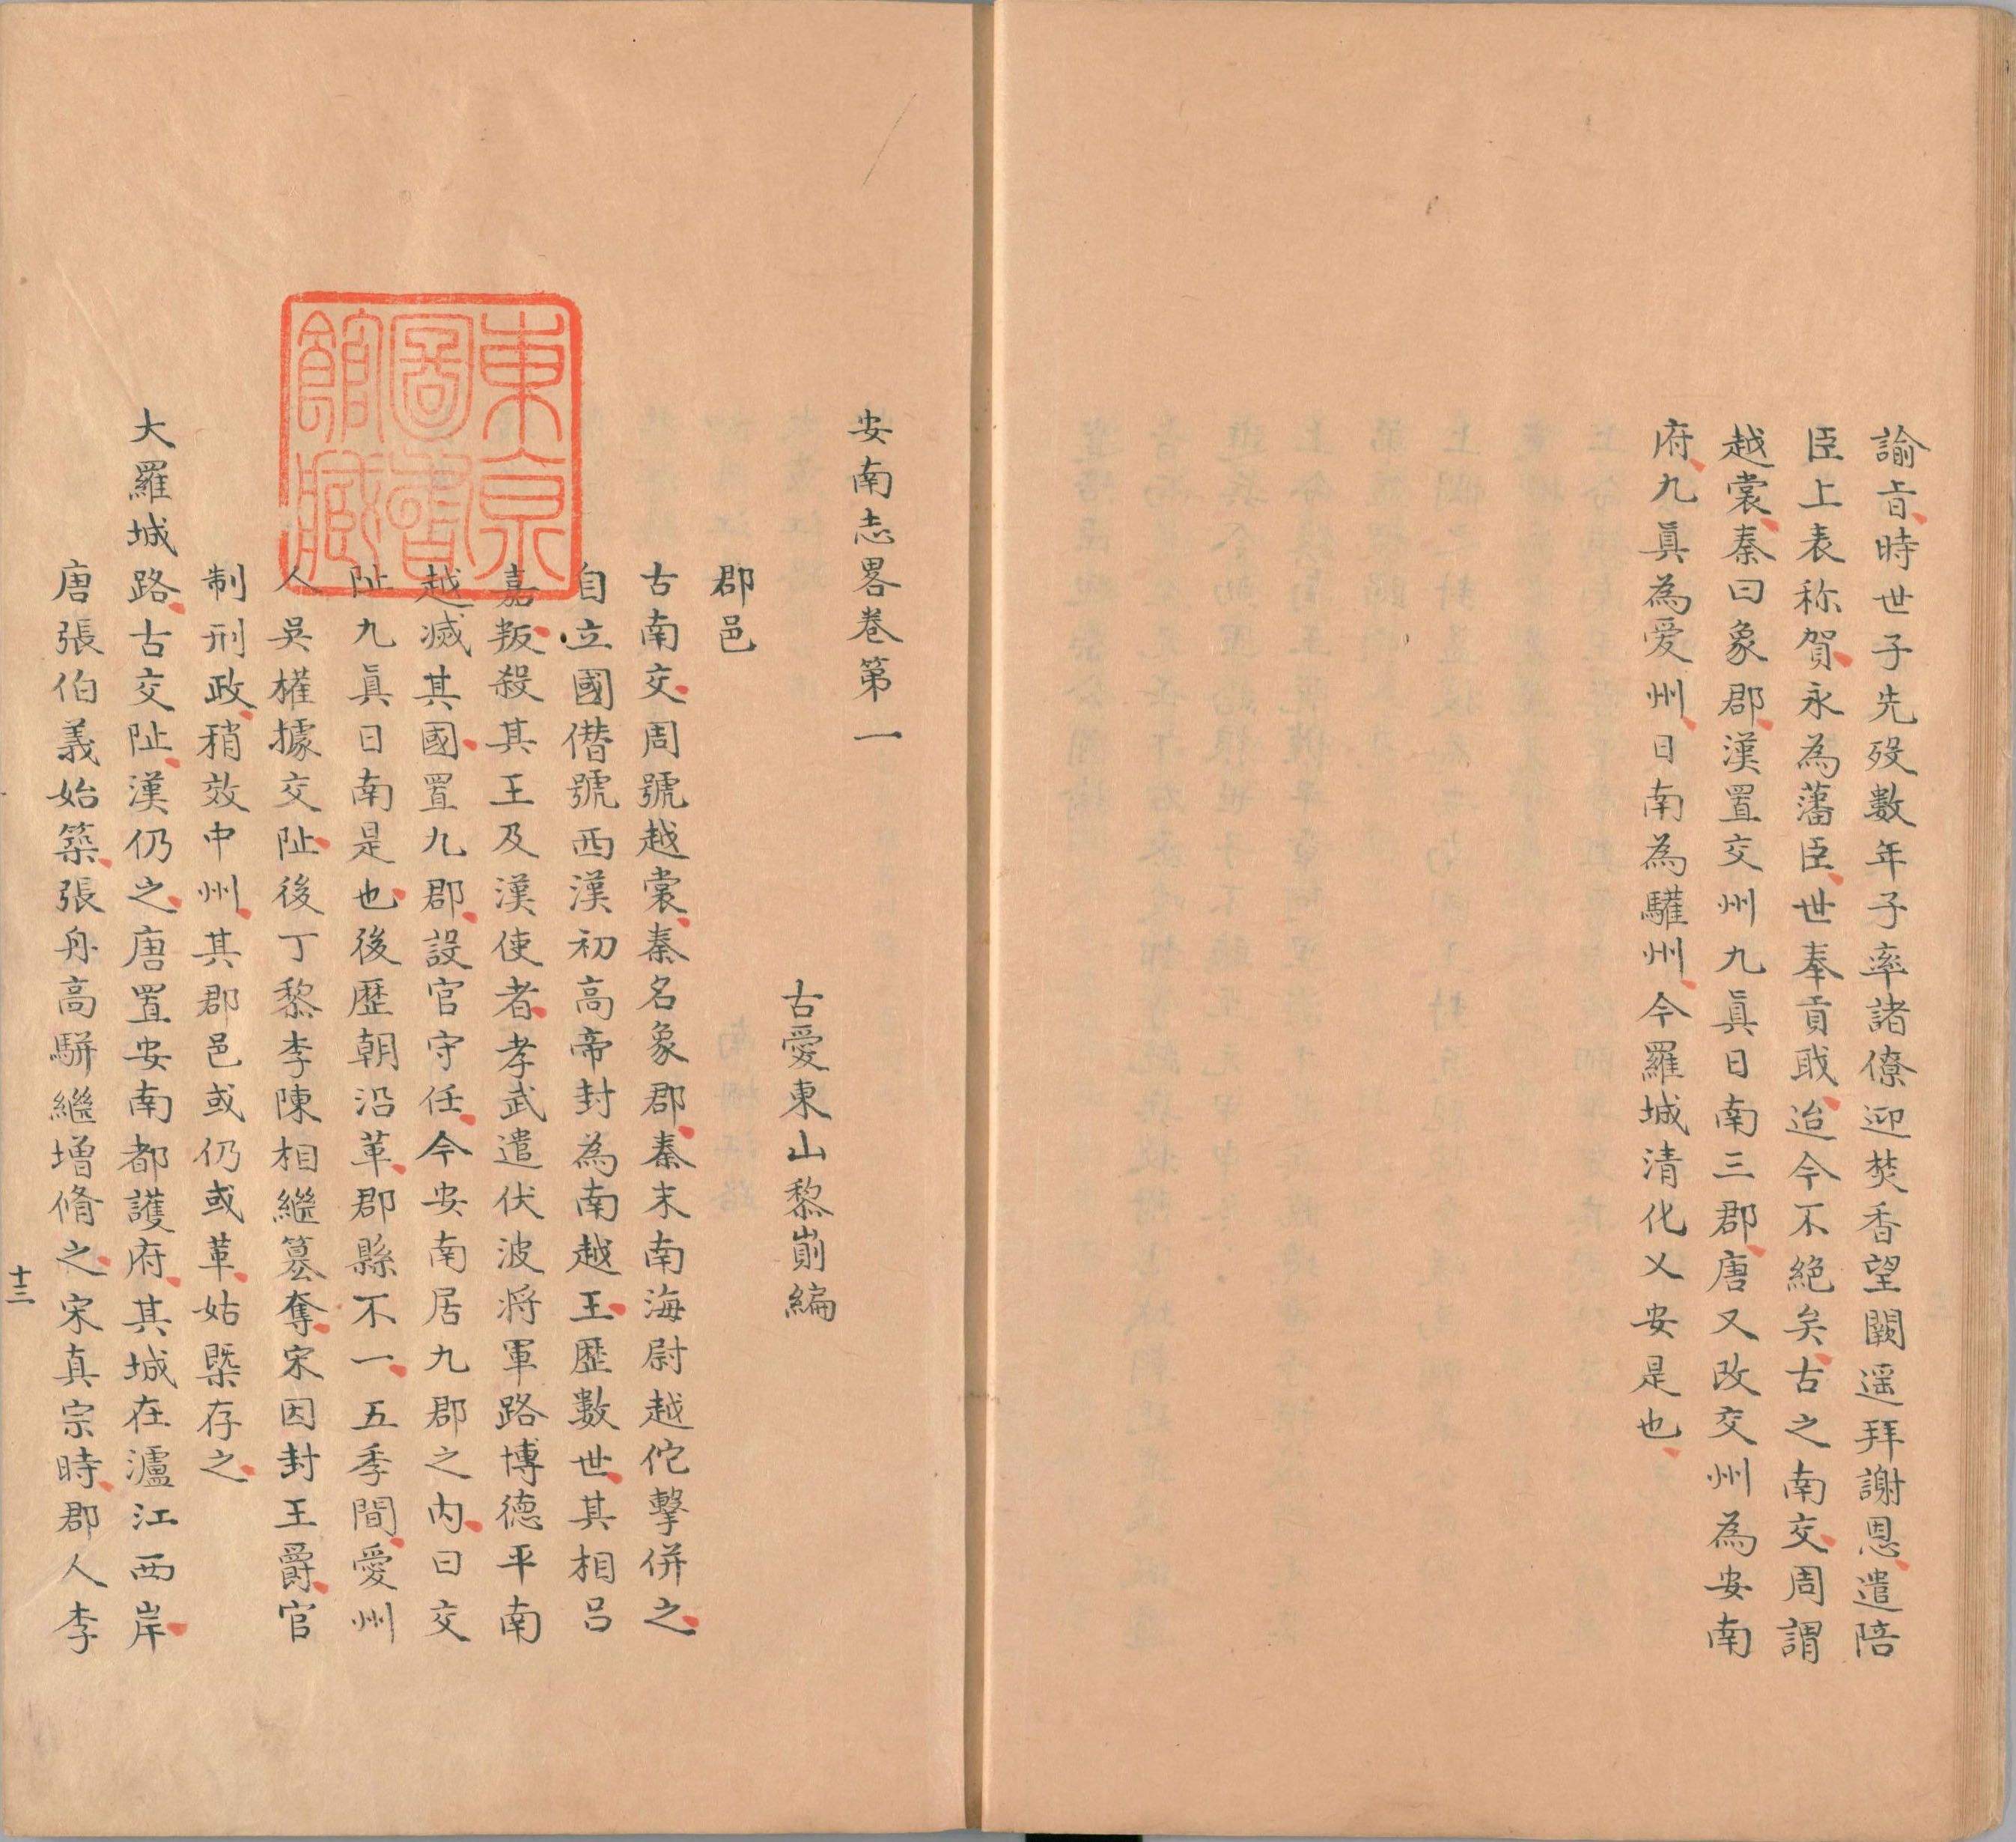 諭㫖時世子先歿數年子率諸僚迎焚香望闕遥拜謝恩遣陪
臣上表称賀永為藩臣世奉貢戢迨今不絶矣古之南交周謂
越裳秦曰象郡漢置交州九眞日南三郡唐又改交州為安南
府九眞為爱州日南為驩州今羅城清化乂安是也
安南志畧卷第一
古愛東山黎崱編
郡邑
古南交周號越裳秦名象郡秦末南海尉越佗擊併之
自立國僣號西漢初高帝封為南越王歷數世其相吕
嘉叛殺其王及漢使者孝武遣伏波将軍路博德平南
越滅其國置九郡設官守任今安南居九郡之内曰交
阯九眞日南是也後歷朝沿革郡縣不一五季間愛州
人吳權據交阯後丁黎李陳相繼篡奪宋因封王爵官
制刑政稍效中州其郡邑或仍或革姑槩存之
大羅城路古交阯漢仍之唐置安南都護府其城在瀘江西岸
唐張伯義始築張舟高駢繼增脩之宋真宗時郡人李
十三
東京
圖書
館臧